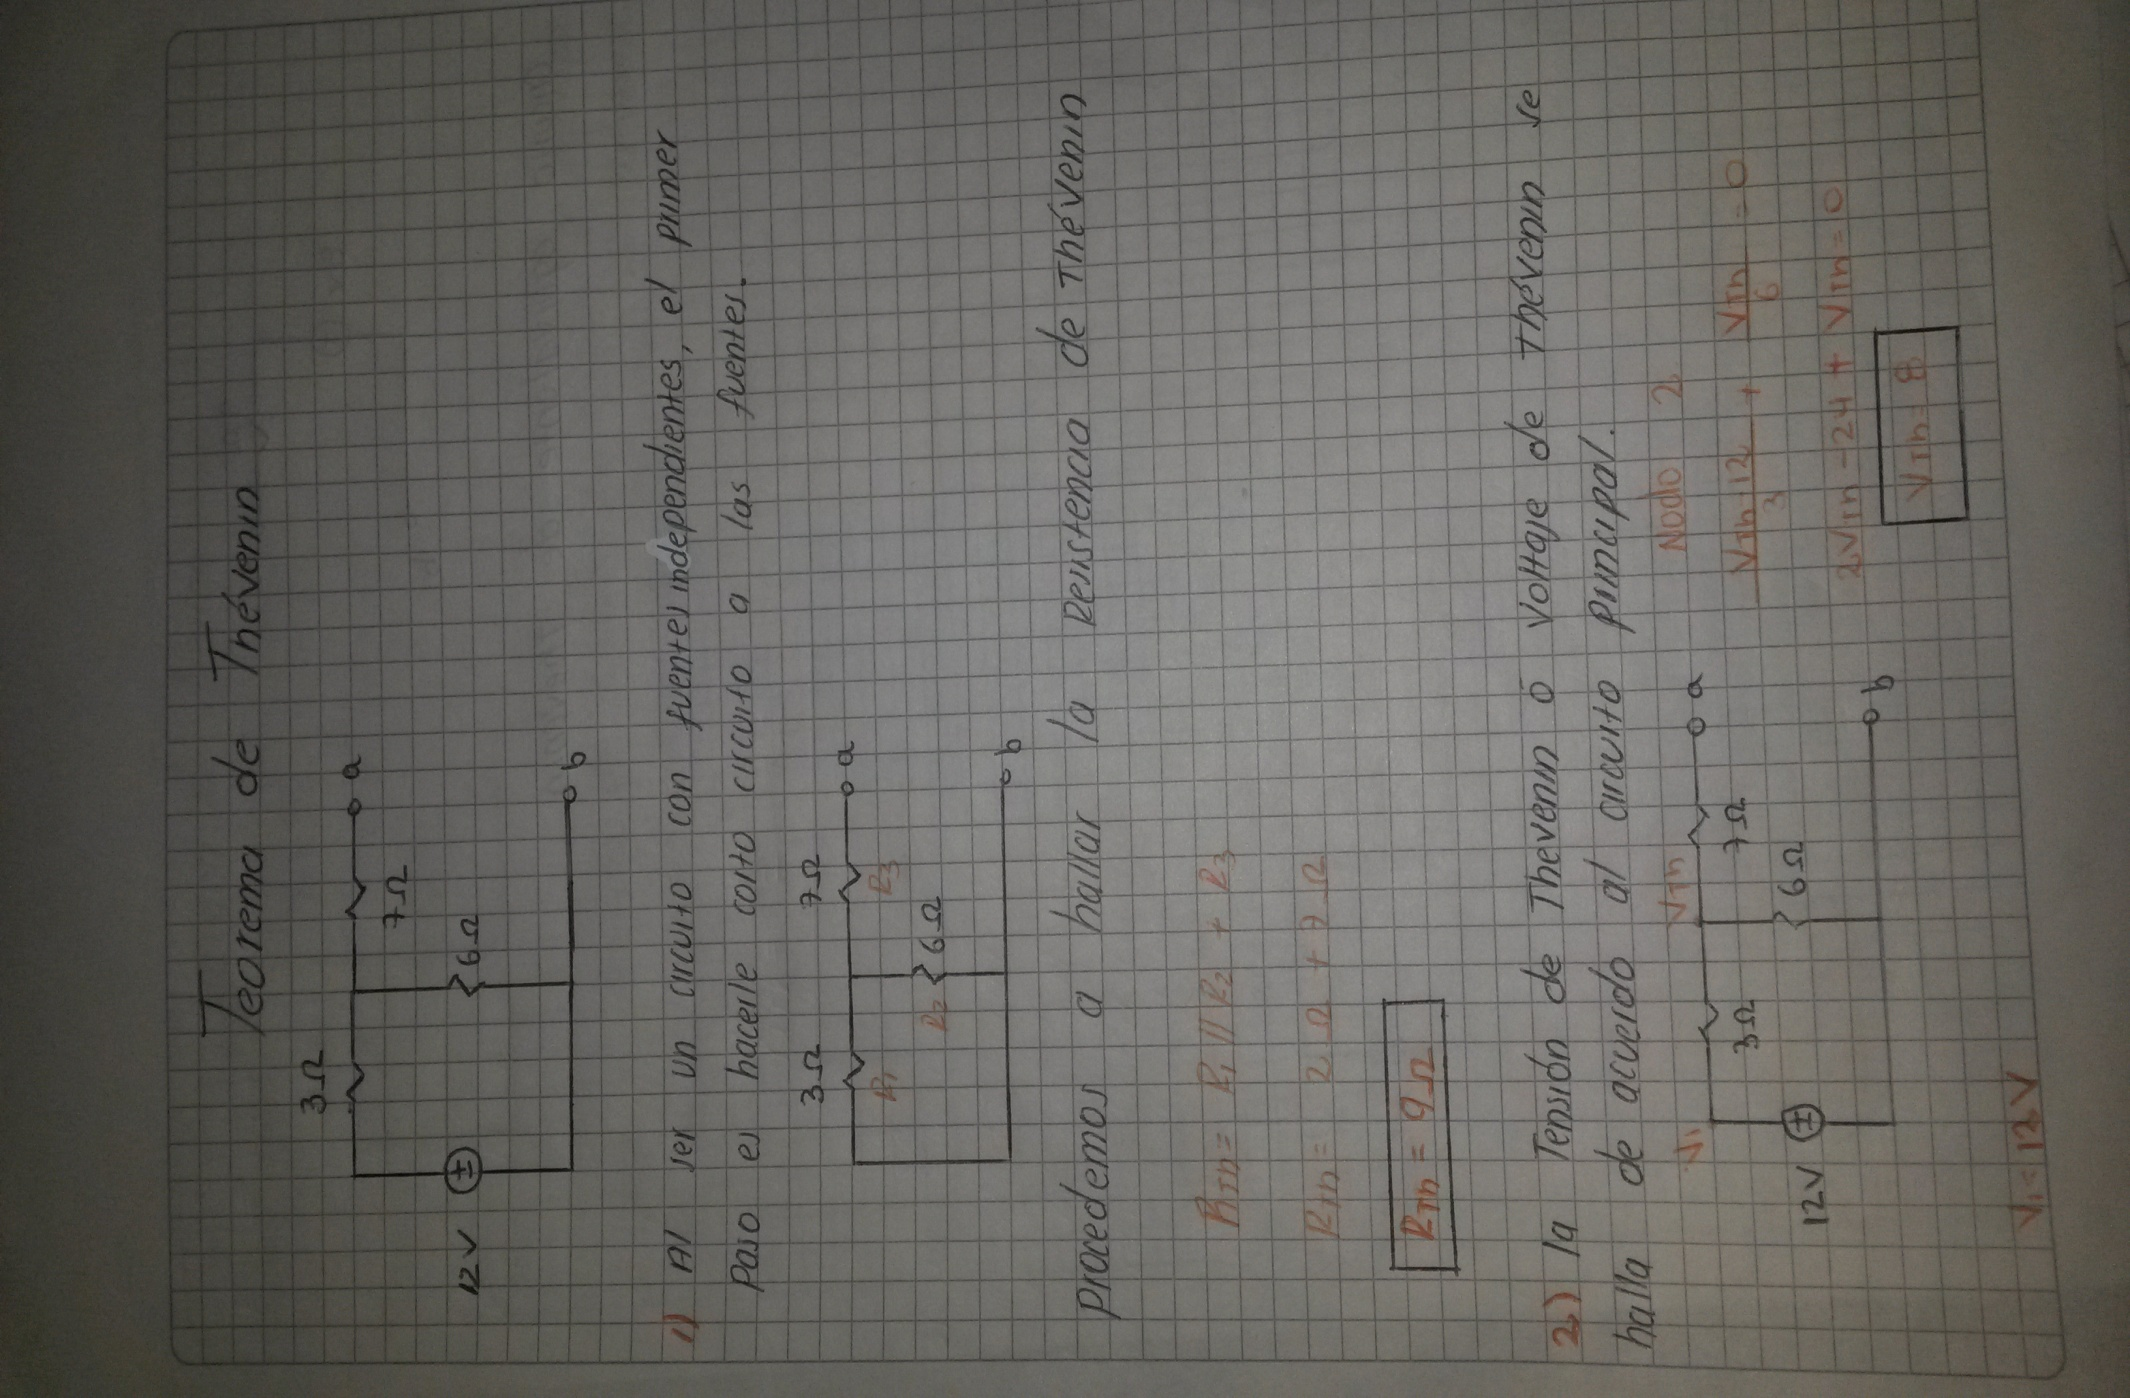 Teorema de Thévenin
3Ω
7Ω
a
12V
6Ω
b
1) Al ser un circuito con fuentes independientes, el primer
Paso es hacerle corto circuito a las fuentes.
3Ω
7Ω
a
R1
R3
R2
6Ω
b
Procedemos a hallar la Resistencia de Thévenin
RTh = R1 // R2 + R3
RTh = 2Ω + 7Ω
RTh = 9Ω
2) la Tensión de Thevenin ó Voltaje de Thévenin se
halla de acuerdo al circuito Principal.
V1
VTh
a
3Ω
7Ω
12V
6Ω
b
V1 = 12V
Nodo 2
VTh-12/3 + VTh/6 = 0
2VTh - 24 + VTh = 0
VTh = 8